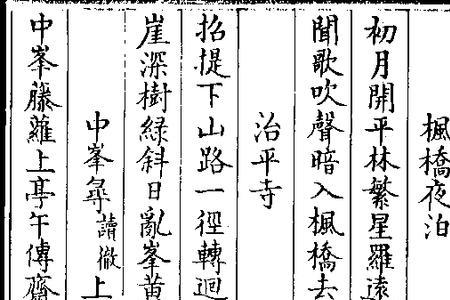 楓橋夜泊
初月開平林繁星羅遠
聞歌吹聲暗入楓橋去
治平寺
招提下山路一徑轉迴
崖深樹綠斜日亂峯黃
中峯尋讀徹上
中峯藤蘿上亭午傳齋